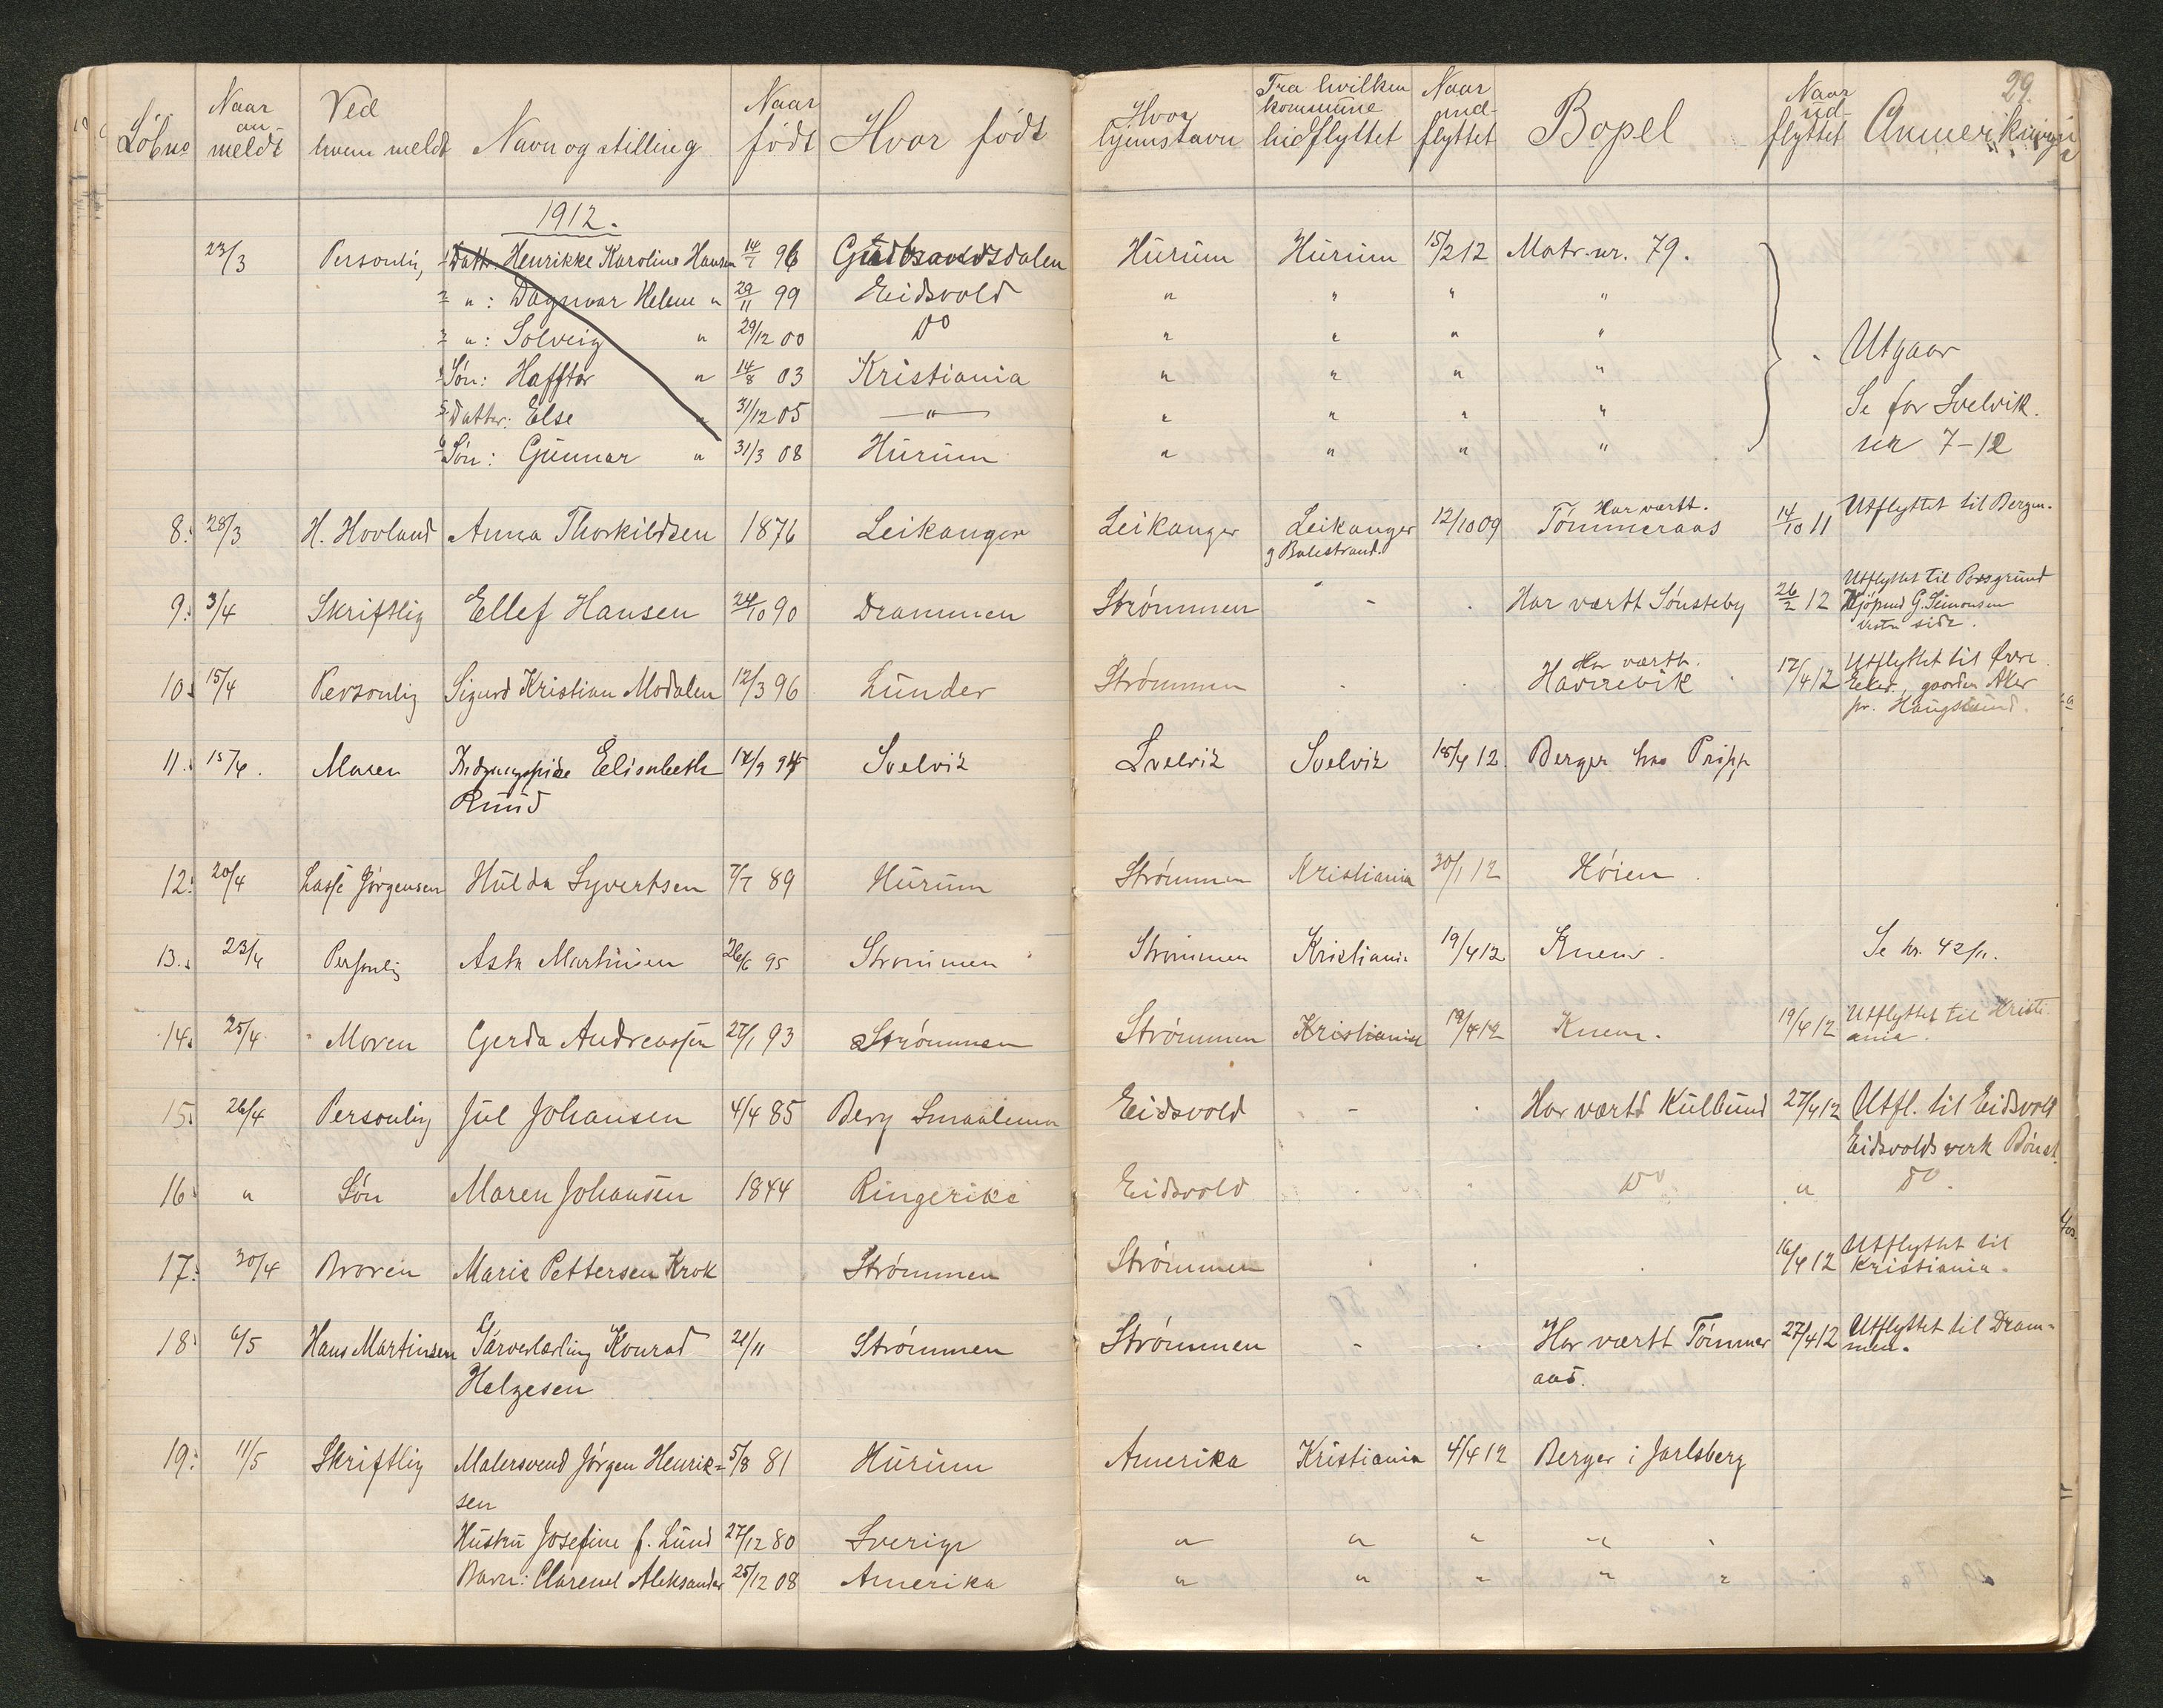 29
Löbno Naar an- meldt Ved hvem meldt Navn og stilling Naar födt Hvor födt Hvor hjemstavn Fra hvilken kommune hidflyttet Naar ind- flyttet Bopel Naar ud- flyttet Anmerkninger
1912.
23/3 Personlig, 1 Datter Henrikke Karoline Hansen 14/7 96 Gudbrandsdalen Hurum Hurum 15/2 12 Matr. nr. 79.
2 " : Dagmar Helene " 29/11 99 Eidsvold " " " "
3 " : Solveig " 29/12 00 Do " " " "
4 Søn: Hafftor " 14/8 03 Kristiania " " " " Utgaar
5 Datter: Else " 31/12 05 " " " " " Se for Svelvik.
6 Søn: Gunnar " 31/3 08 Hurum " " " " nr 7-12
8: 28/3 H. Hovland Anna Thorkildsen 1876 Leikanger Leikanger Leikanger 12/10 09 Har værtt. Tömmeraas 14/10 11 Utflyttet til Bergen.
g Balestrand.
9: 3/4 Skriftlig Ellef Hansen 24/10 90 Drammen Strömmen - . Har værtt Sönsteby 26/2 12 Utflyttet til Porsgrund
Kjöpmd G. Simonsen
vestre side.
10: 15/4 Personlig Sigurd Kristian Modalen 12/3 96 Lunder Strömmen . . Har værtt. Haverevik 17/4 12 Utflyttet til Øvre
Eker, gaarden Aker
pr. Haugsund.
11: 15/4. Moren Elisabeth 14/9 94 Svelvik Svelvik Svelvik 18/4 12. Berger hos Pripp
Ruud
12: 20/4 Lasse Jörgensen Hulda Syvertsen 7/7 89 Hurum Strömmen Kristiania 30/1 12 Höien.
13: 23/4 Personlig Asta Martinsen 26/6 95 Strömmen Strömmen Kristiania 19/4 12 Knem. Se nr. 42/11.
14: 25/4 Moren Gerda Andreassen 27/1 93 Strömmen Strömmen Kristiania 19/4 12 Knem. 19/4 12 Utflyttet til Kristi-
ania.
15: 26/4 Personlig Jul Johansen 4/4 85 Berg Smaalenene Eidsvold - . Har værtt Kulbund 27/4 12 Utfl. til Eidsvold
Eidsvolds verk Bönst.
16: " Sön Maren Johansen 1844 Ringerike Eidsvold . . Do " Do.
17: 30/4 Broren Marie Pettersen Krok Strömmen Strömmen . . . 16/4 12 Utflyttet til
Kristiania.
18: 6/5 Hans Martinsen Garverlærling Konrad 21/11 Strömmen Strömmen - . Har værtt Tömmer 27/4 12 Utflyttet til Dram-
Helgesen aas. men.
19: 11/5 Skriftlig Malersvend Jörgen Henrik- 5/8 81 Hurum Amerika Kristiania 4/4 12 Berger i Jarlsberg
sen
Hustru Josefine f. Lund 27/12 80 Sverige " " " " "
Barn: Clarence Aleksander 25/12 08 Amerika " " " " "